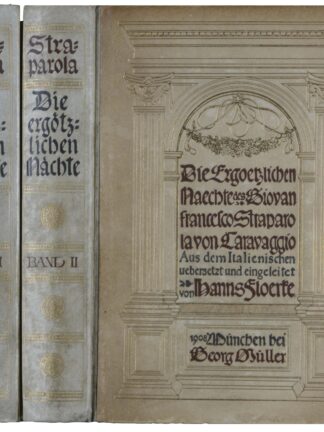 Stra-
parola
Die
ergötz-
lichen
Nächte
BAND II
Die Ergoetzlichen
Naechte des Giovan
francesco Straparo
la von Caravaggio
Aus dem Italienischen
uebersetzt und eingeleitet
von Hanns Floerke
1908 München bei
Georg Müller